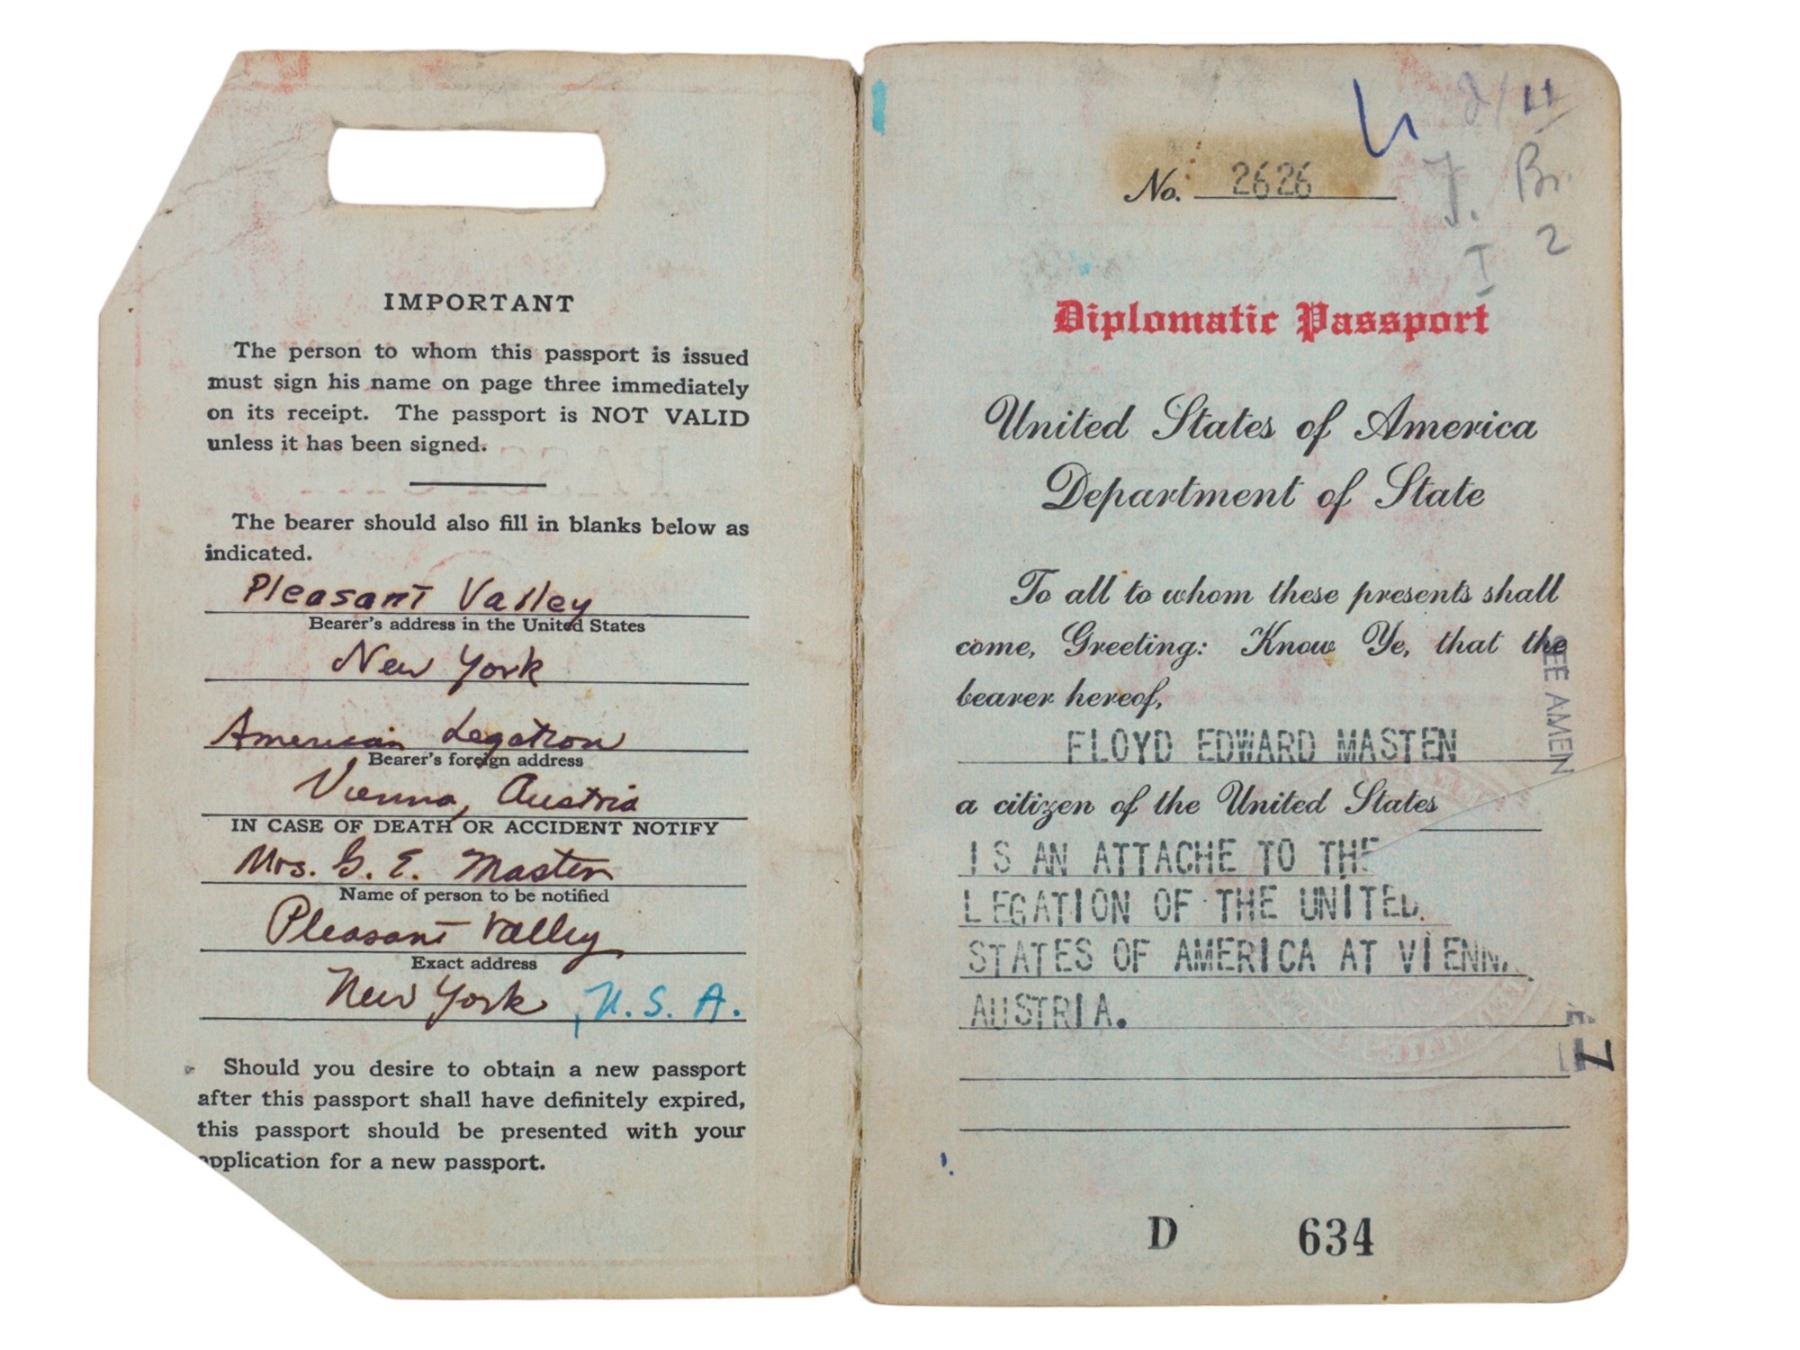 IMPORTANT
The person to whom this passport is issued
must sign his name on page three immediately
on its receipt. The passport is NOT VALID
unless it has been signed.
The bearer should also fill in blanks below as
indicated.
Pleasant Valley
Bearer's address in the United States
New York
American Legation
Bearer's foreign address
Vienna, Austria
IN CASE OF DEATH OR ACCIDENT NOTIFY
Mrs. G. E. Masten
Name of person to be notified
Pleasant Valley
Exact address
New York, U.S.A.
Should you desire to obtain a new passport
after this passport shall have definitely expired,
this passport should be presented with your
application for a new passport.
Br.
2
I
No. 2626
Diplomatic Passport
United States of America
Department of State
To all to whom these presents shall
come, Greeting: Know Ye, that the
bearer hereof,
FLOYD EDWARD MASTEN
a citizen of the United States
IS AN ATTACHE TO THE
LEGATION OF THE UNITED
STATES OF AMERICA AT VIENNA
AUSTRIA.
SEE AMEN
7
D 634